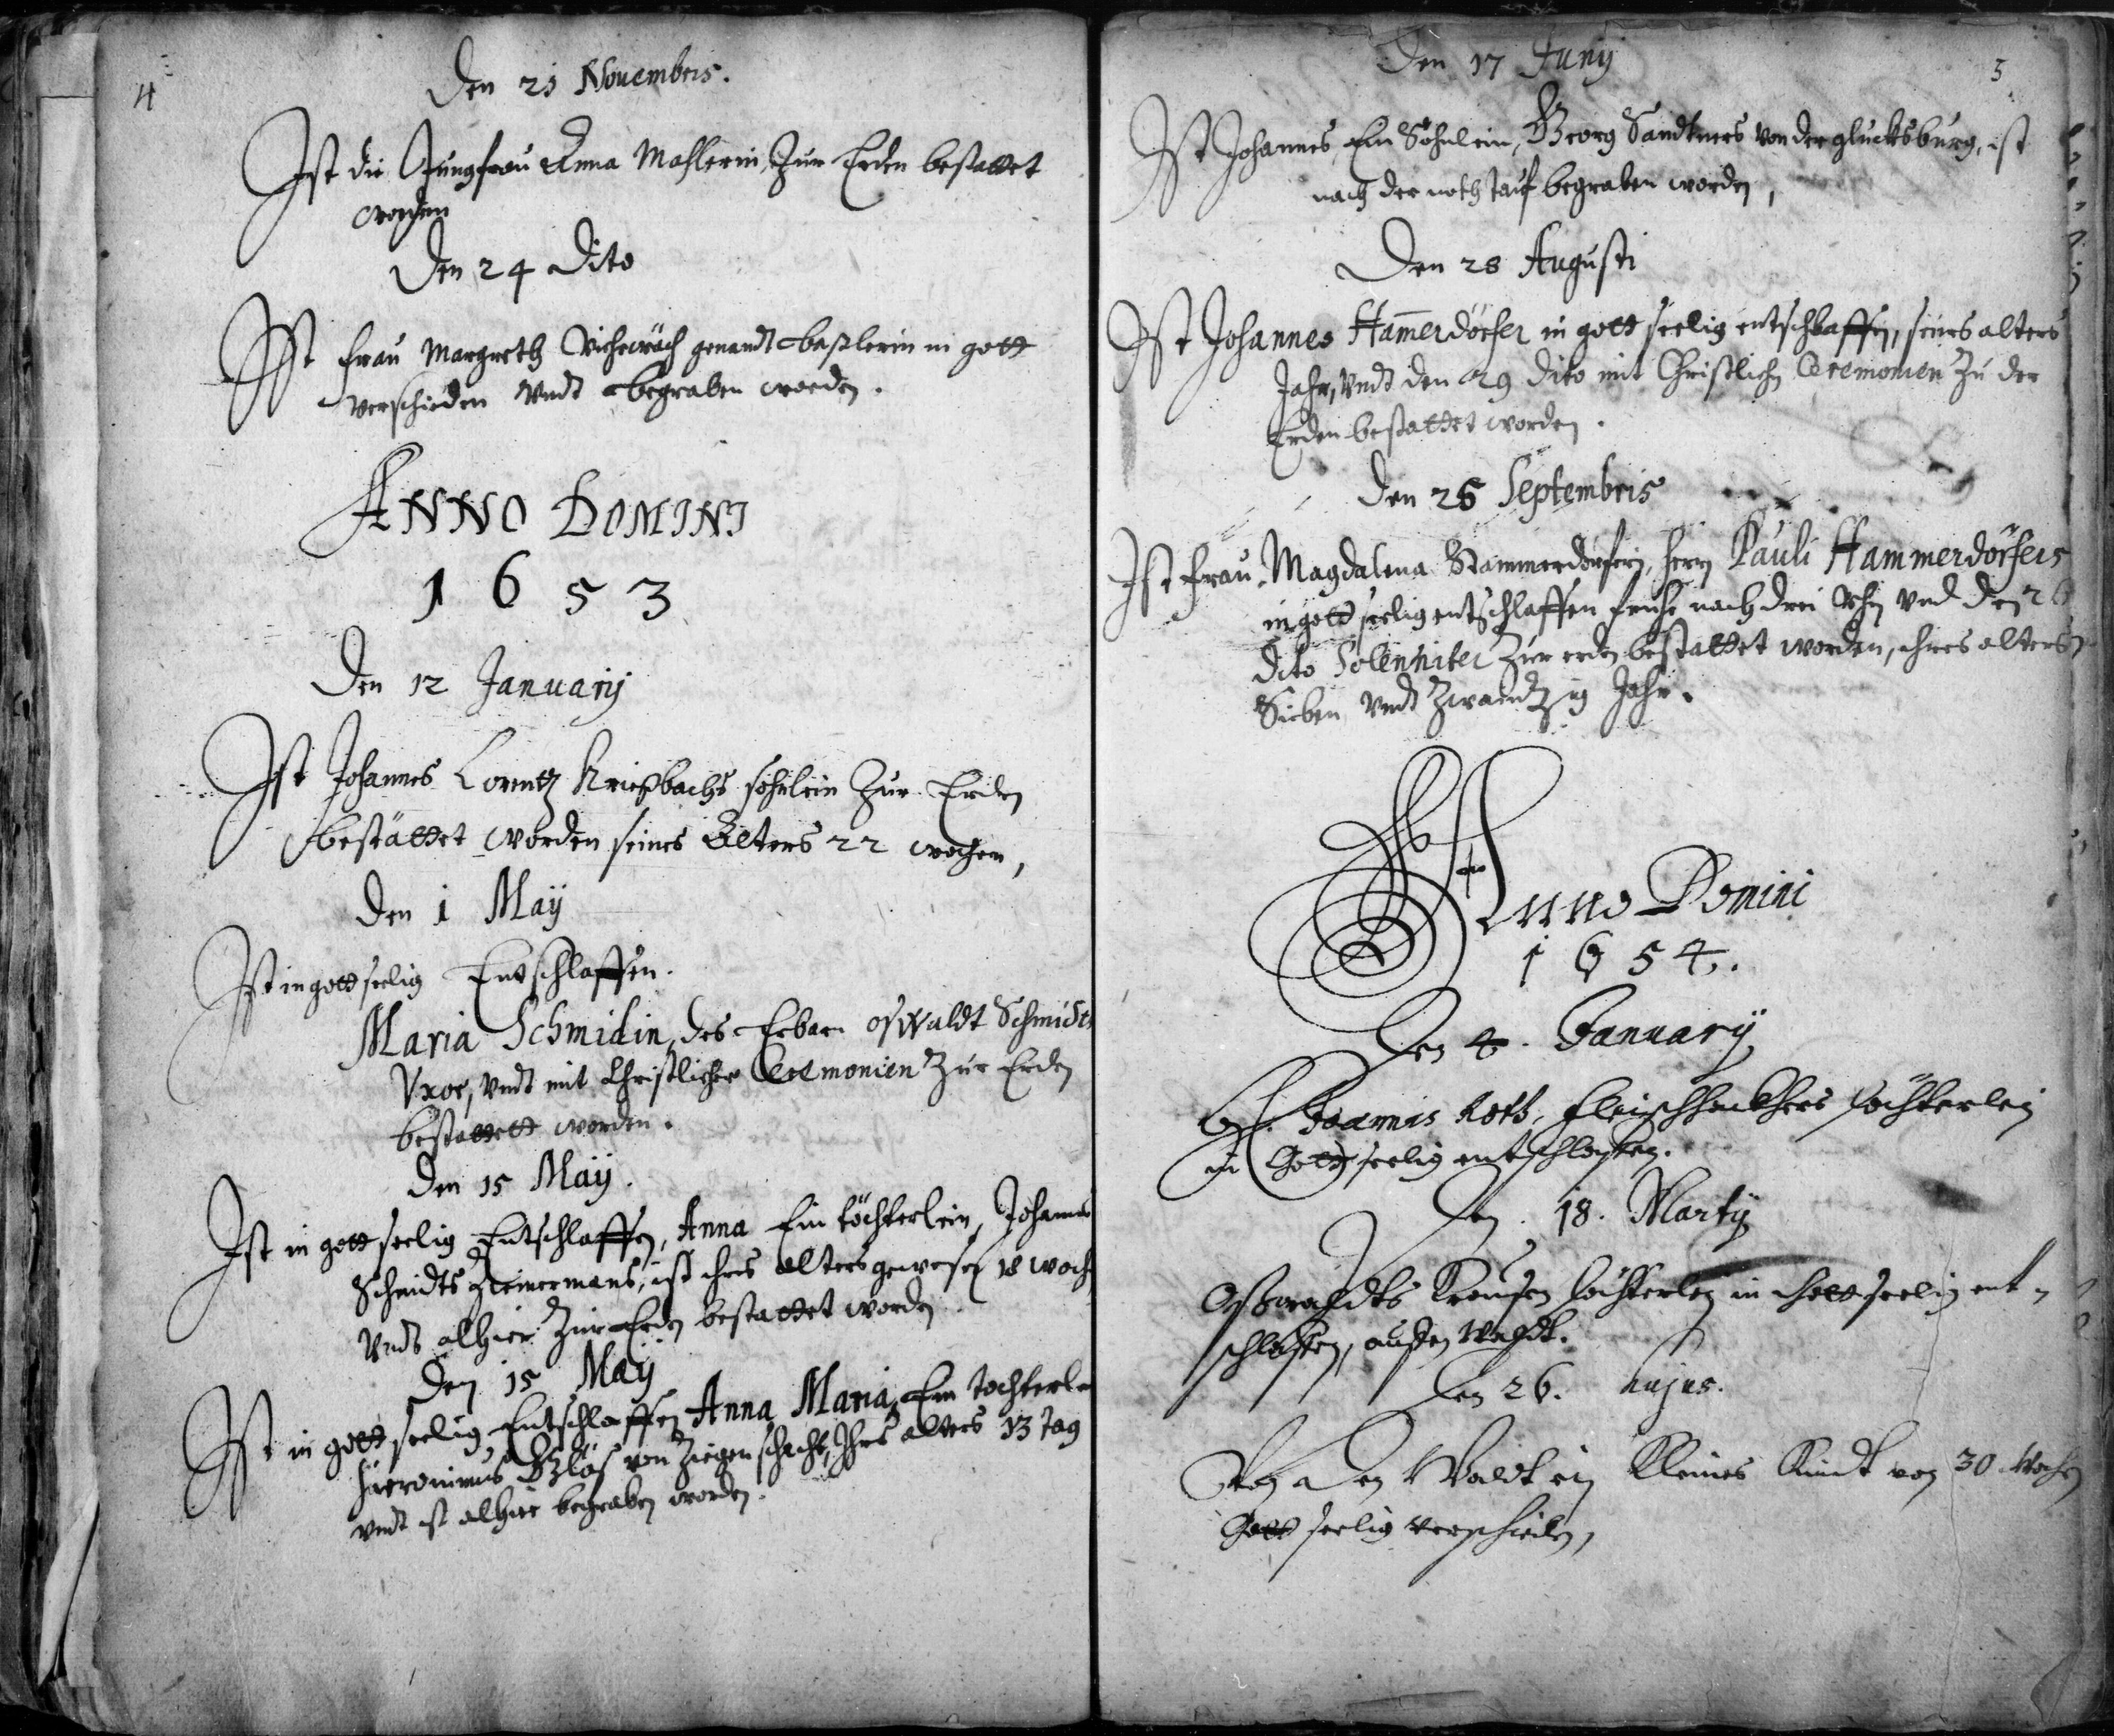 4
Den 21 Novembris.
Ist die Jungfrau Anna Mahlerin, Zur Erden bestattet
worden
Den 24 Dito
Ist Frau Margreth genandt baslerin in gott
verschieden Undt begraben worden.
ANNO DOMINI
1653
Den 12 Januarij
Ist Johannes Lorentz Krießbachs söhnlein Zur Erden
bestättet worden seines Alters 22 wochen,
Den 1 Maij
Ist in gott seelig Entschlaffen.
Maria Schmidin, des Erbarn oswaldt Schmidts
Vxor, Undt mit Christlicher Ceremonien Zur Erden
bestattett worden.
Den 15 Maij.
Ist in gott seelig Entschlaffen, Anna Ein töchterlein, Johannes
Schmidts Zimermans, ist ihres alters gewesen 18 woch
Undt alhier Zur Erden bestattet worden.
Den 15 Maij
Ist in gott seelig Entschlaffen Anna Maria, Ein tochterle
Hieronimus von Ziegenschacht, Ihres alters 13 tag
undt ist alhier begraben worden.
5
Den 17 Junij
Ist Johannes, Ein Söhnlein, Georg Sandtners von der glucksburg, ist
nach der noth tauf begraben worden,
Den 28 Augusti
Ist Johannes Ham̅erdörfer in gott seelig entschlaffen, seines alters
Jahr, Undt den 29 dito mit Christlichen Ceremonien Zu der
Erden bestattet worden.
Den 25 Septembris
Ist Frau Magdalena Hammerdörferin, Herrn Pauli Hammerdörfers
in gott seelig entschlaffen fruhe nach drei Uhr Und den 26
dito Solenniter Zur erden bestattet worden, ihres alters
Sieben Undt Zwaintzig Jahr.
Anno Domini
1654.
Den 4. Januarij
H. Joannis Roth, Fleischhackhers töchterlein
in Gott seelig entschlaffen.
Den 18. Martij
Oßwaldts Krausen töchterlein in Gott seelig ent-
schlaffen,
Den 26. hujus.
Waldt ein kleines Kindt von 30 Wochen
Gott seelig verschieden,